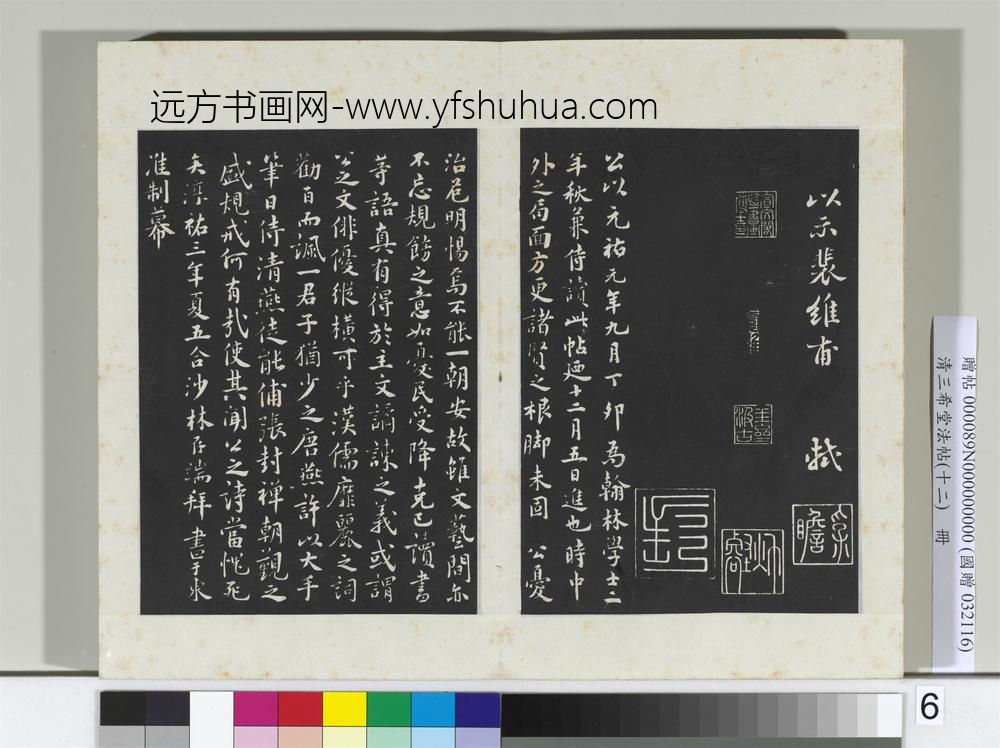 远方书画网-www.yfshuhua.com
以示裴維甫 軾
公以元祐元年九月丁卯為翰林學士二
年秋兼侍讀此帖廼十二月五日進也時中
外之局面方更諸賢之根脚未固 公憂
治危明惕焉不能一朝安故雖文藝間亦
不忘規飭之意如憂民受降克己讀書
等語真有得於主文譎諫之義或謂
公之文俳優縱橫可乎漢儒靡麗之詞
勸百而諷一君子猶少之唐燕許以大手
筆日侍清燕徒能鋪張封禪朝覲之
盛規戒何有哉使其聞公之詩當愧死
矣淳祐三年夏五合沙林存端拜書于
淮制幕
贈帖 0000089N000000000 (國贈 032116)
清三希堂法帖(十二) 冊
6